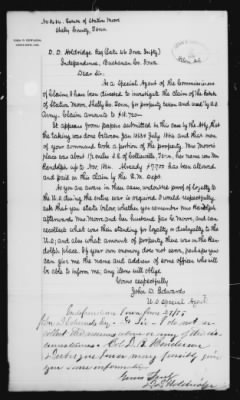 No 8634. Estate of Station Moon
Shelby County, Tenn
JOHN D. EDWARDS,
D. D. Holdridge Esq (late 46 Iowa Infty)
Independence, Buchanan Co. Iowa
Dear Sir.
As a Special Agent of the Commissioners
of Claims I have been directed to investigate the claim of the Estate
of Station Moon, Shelby Co. Tenn, for property taken and used by U.S
Army. Claim amounts to $18,720—
It appears from papers submitted in this case by the Atty, that
the taking was done between Jan 1863 & July 1864 and that men
of your command took a portion of the property. Mrs Moon's
place was about 1½ miles S.E of Colliersville Tenn, her name was Mrs
Randolph up to Nov. 1864. Already $7,700 has been allowed
and paid in this claim by the Q.M. Dept.
As you are aware in these cases, undoubted proof of loyalty to
the U.S during the entire war is required. I would respectfully
ask that you state whether you remember Mrs Randolph
afterwards Mrs Moon and her husband Geo W. Moon, and can
recollect what was their standing for loyalty or disloyalty to the
U.S; and also what amount of property there was on the Ran-
dolph place. If your own memory does not serve, perhaps you
can give me the name and address of some officer who will
be able to inform me, any item will oblige
Very respectfully
John D. Edwards
U.S Special Agent.
Independence Iowa
John D Edwards Esq — Dr Sir — I do not re-
collect
Col D. B Henderson
Dubuque Iowa may possibly give
you some information
Yours Truly